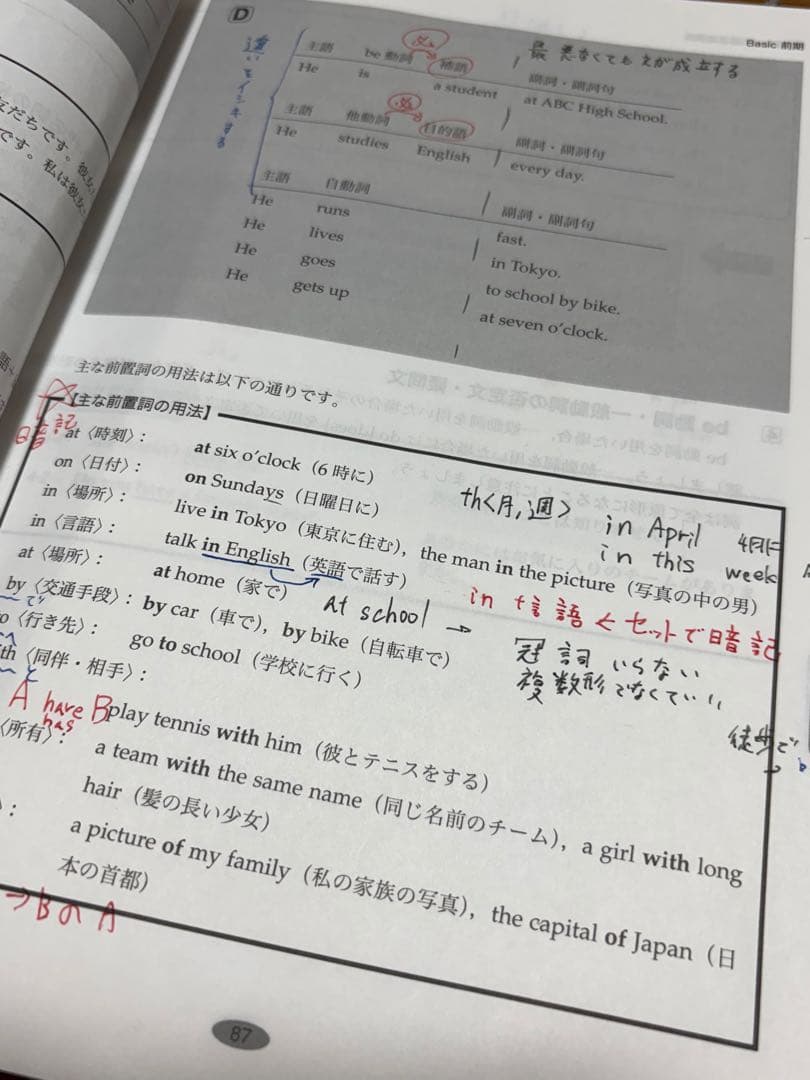 D
Basic 前期
最悪なくても文が成立する
違いをイシキする
必
主語 be動詞 補語 副詞・副詞句
He is a student at ABC High School.
必
主語 他動詞 目的語 副詞・副詞句
He studies English every day.
主語 自動詞 副詞・副詞句
He runs fast.
He lives in Tokyo.
He goes to school by bike.
He gets up at seven o'clock.
主な前置詞の用法は以下の通りです。
暗記
【主な前置詞の用法】
at〈時刻〉: at six o'clock（6時に）
on〈日付〉: on Sundays（日曜日に）
in〈場所〉: live in Tokyo（東京に住む），the man in the picture（写真の中の男）
in〈言語〉: talk in English（英語で話す）
at〈場所〉: at home（家で）
by〈交通手段〉: by car（車で），by bike（自転車で）
〈行き先〉: go to school（学校に行く）
〈同伴・相手〉:
play tennis with him（彼とテニスをする）
〈所有〉:
a team with the same name（同じ名前のチーム），a girl with long
hair（髪の長い少女）
a picture of my family（私の家族の写真），the capital of Japan（日
本の首都）
〈月, 週〉 in April 4月に
in this week
At school →
in 言語 ← セットで暗記
冠詞いらない
複数形でなくていい
徒歩で
→
A have B
has
→BのA
87
友だちです。彼女
です。私は彼女